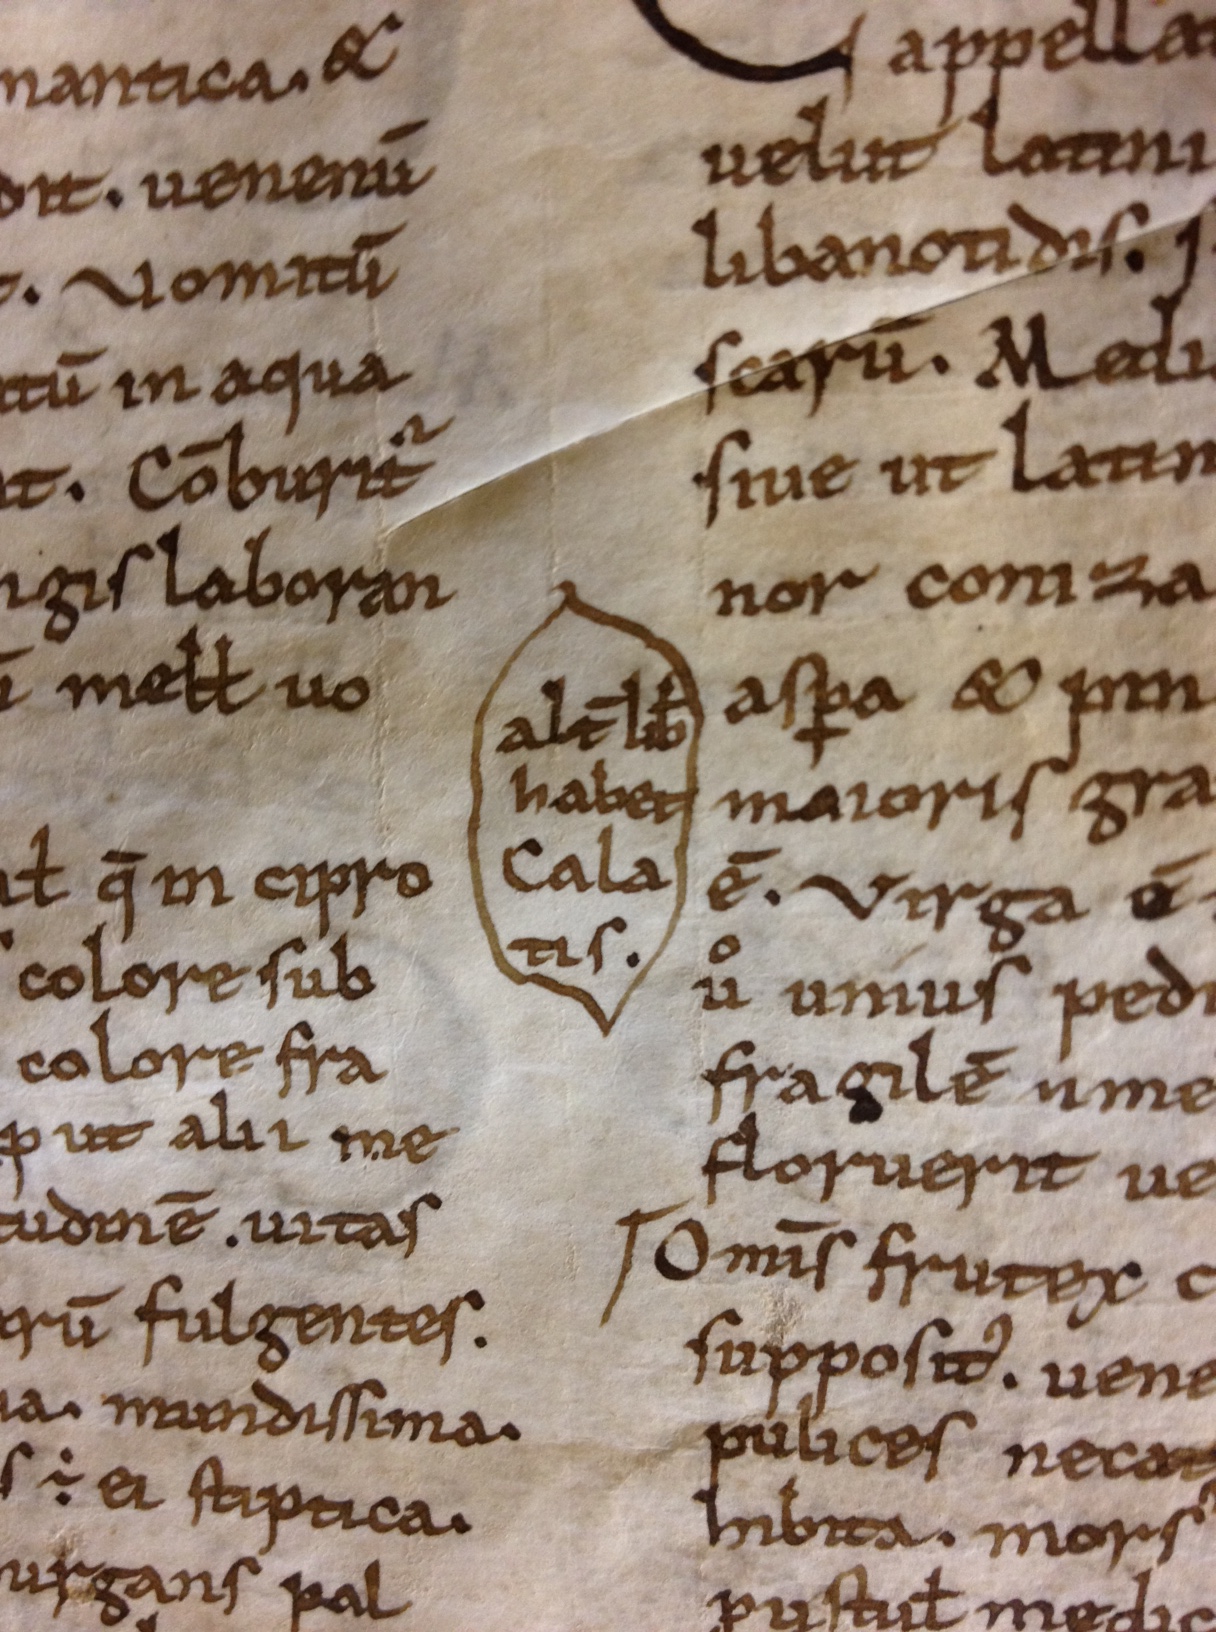 mantica. &
dit. uenenū
t. Vomitū
atū in aqua
at. Cōburit
ngis laboran
ū meƚƚ uo
aƚ q̄ in cipro
colore sub
colore fra
put alii me
tudinē. uitas
arū fulgentes.
na. mundissima.
s ⁊ ei stiptica.
urgans pal
alt̄ lib̄
habet
Cala
tis.
appellat
uelut latini
libanotidis. s
scarū. Medi
siue ut latin
nor coniza
asꝑa & pin
maioris gra
ē. Virga ē
uͦ unius pedi
fragilē ume
floruerit ue
Omīs frutex c
supposit᾿. uene
pulices necat
bibita. mors
pustuƚ medic